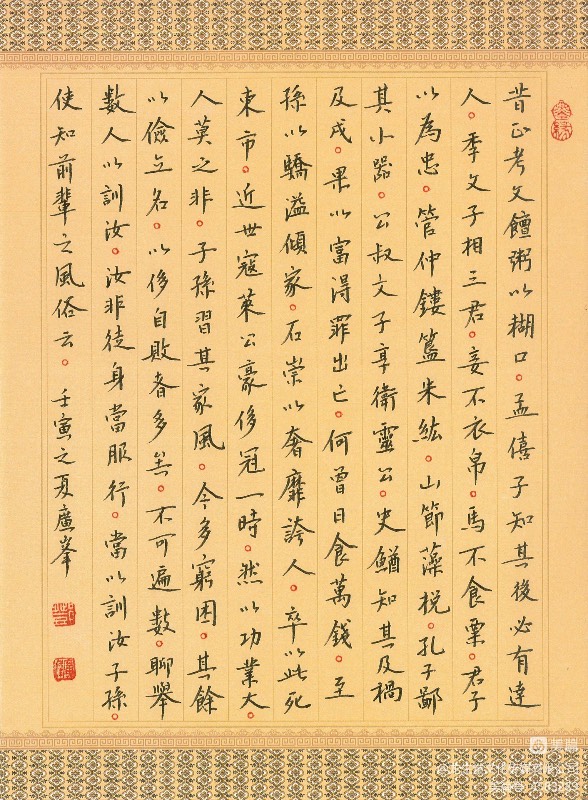 昔正考父饘粥以糊口。孟僖子知其後必有達
人。季文子相三君。妾不衣帛。馬不食粟。君子
以為忠。管仲鏤簋朱紘。山節藻梲。孔子鄙
其小器。公叔文子享衛靈公。史鰌知其及禍
及戌。果以富得罪出亡。何曾日食萬錢。至
孫以驕溢傾家。石崇以奢靡誇人。卒以此死
東市。近世寇萊公豪侈冠一時。然以功業大。
人莫之非。子孫習其家風。今多窮困。其餘
以儉立名。以侈自敗者多矣。不可遍數。聊舉
數人以訓汝。汝非徒身當服行。當以訓汝子孫。
使知前輩之風俗云。壬寅之夏廣峯
美篇